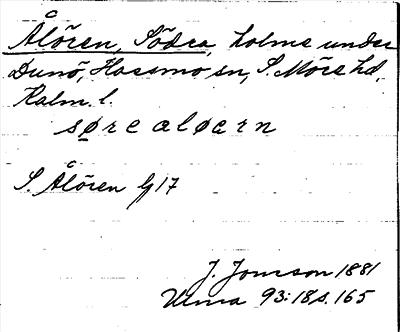 Ålören, Södra, holme under
Dunö, Hossmo sn, S. Möre hd,
Kalm. l.
sørealøern
S. Ålören G 17
J. Jonsson 1881
Ulma 93:18 s. 165